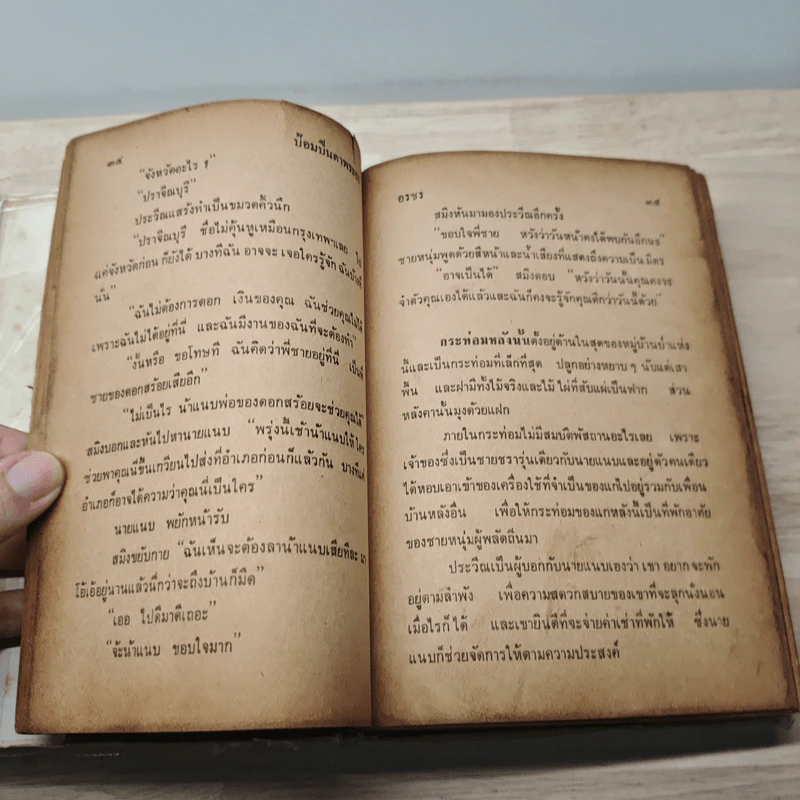 ๓๔
ป้อมปืนตาพระ
"จังหวัดอะไร ?"
"ปราจีณบุรี"
ประวีณแสร้งทำเป็นขมวดคิ้วนึก
"ปราจีณบุรี ชื่อไม่คุ้นหูเหมือนกรุงเทพฯเลย
แค่จังหวัดก่อน ก็ยังได้ บางทีฉัน อาจจะ เจอใครรู้จัก ฉันบ้าง
นั้น"
"ฉันไม่ต้องการดอก เงินของคุณ ฉันช่วยคุณไม่ได้
เพราะฉันไม่ได้อยู่ที่นี่ และฉันมีงานของฉันที่จะต้องทำ"
"งั้นหรือ ขอโทษที ฉันคิดว่าพี่ชายอยู่ที่นี่ เป็นพี่
ชายของดอกสร้อยเสียอีก"
"ไม่เป็นไร น้าแนบพ่อของดอกสร้อยจะช่วยคุณได้"
สมิงบอกและหันไปหานายแนบ "พรุ่งนี้เช้าน้าแนบให้ใคร
ช่วยพาคุณนี่ขึ้นเกวียนไปส่งที่อำเภอก่อนก็แล้วกัน บางทีแค่
อำเภอก็อาจได้ความว่าคุณนี่เป็นใคร"
นายแนบ พยักหน้ารับ
สมิงขยับกาย "ฉันเห็นจะต้องลาน้าแนบเสียทีละ มา
โอ้เอ้อยู่นานแล้วนี่กว่าจะถึงบ้านก็มืด"
"เออ ไปดีมาดีเถอะ"
"จ้ะน้าแนบ ขอบใจมาก"
อรชร
๓๕
สมิงหันมามองประวีณอีกครั้ง
"ขอบใจพี่ชาย หวังว่าวันหน้าคงได้พบกันอีกนะ"
ชายหนุ่มพูดด้วยสีหน้าและน้ำเสียงที่แสดงถึงความเป็น มิตร
"อาจเป็นได้" สมิงตอบ "หวังว่าวันนั้นคุณคงจะ
จำตัวคุณเองได้แล้วและฉันก็คงจะรู้จักคุณดีกว่าวันนี้ด้วย"
กระท่อมหลังนั้นตั้งอยู่ด้านในสุดของหมู่บ้านป่าแห่ง
นี้และเป็นกระท่อมที่เล็กที่สุด ปลูกอย่างหยาบ ๆ นับแต่เสา
พื้น และฝามีทั้งไม้จริงและไม้ ไผ่ที่สับแผ่เป็นฟาก ส่วน
หลังคานั้นมุงด้วยแฝก
ภายในกระท่อมไม่มีสมบัติพัสถานอะไรเลย เพราะ
เจ้าของซึ่งเป็นชายชรารุ่นเดียวกับนายแนบและอยู่ตัวคนเดียว
ได้หอบเอาเข้าของเครื่องใช้ที่จำเป็นของแกไปอยู่รวมกับเพื่อน
บ้านหลังอื่น เพื่อให้กระท่อมของแกหลังนี้เป็นที่พักอาศัย
ของชายหนุ่มผู้พลัดถิ่นมา
ประวีณเป็นผู้บอกกับนายแนบเองว่า เขา อยาก จะพัก
อยู่ตามลำพัง เพื่อความสดวกสบายของเขาที่จะลุกนั่งนอน
เมื่อไรก็ ได้ และเขายินดีที่จะจ่ายค่าเช่าที่พักให้ ซึ่งนาย
แนบก็ช่วยจัดการให้ตามความประสงค์